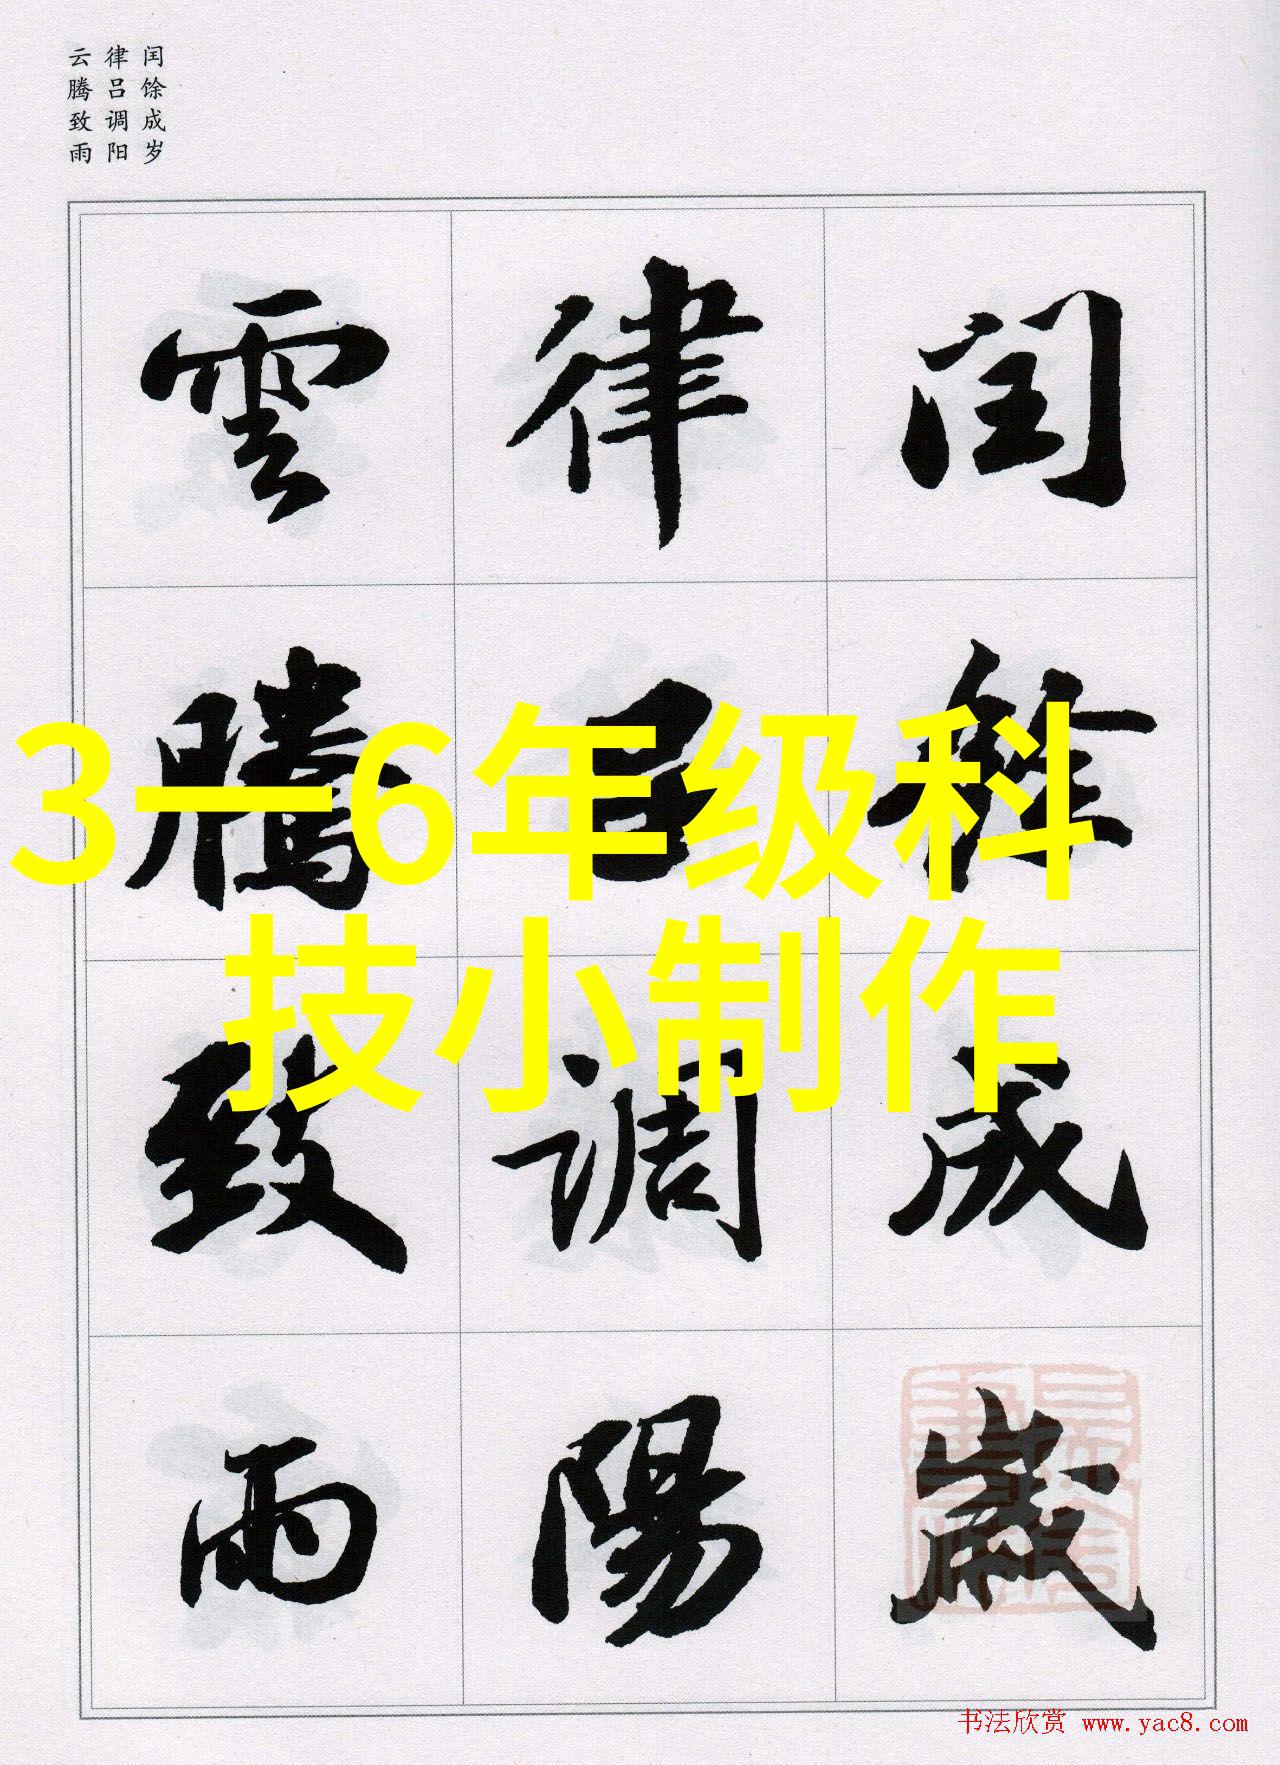 闰馀成岁
律吕调阳
云腾致雨
閏餘成歲
律吕調陽
雲騰致雨
3一6年级科
技小制作
书法欣赏 www.yac8.com